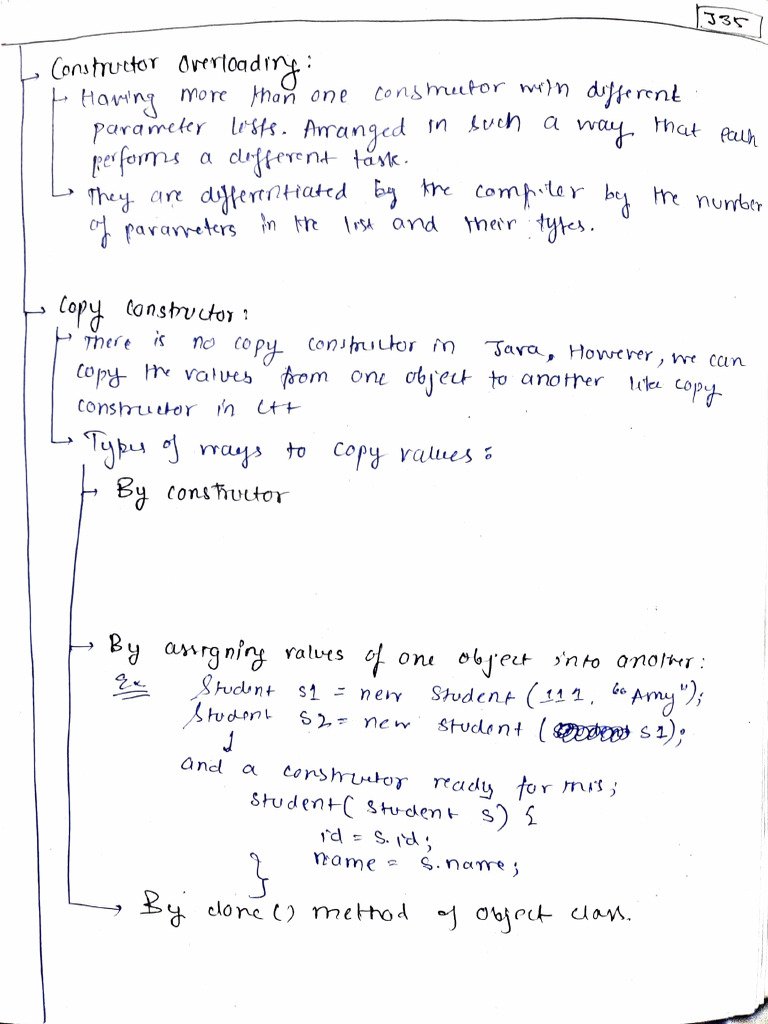 J35
Constructor Overloading:
Having more than one constructor with different
parameter lists. Arranged in such a way that each
performs a different task.
They are differentiated by the compiler by the number
of parameters in the list and their types.
Copy constructor:
There is no copy constructor in Java, However, we can
copy the values from one object to another like copy
constructor in C++
Types of ways to copy values:
By constructor
By assigning values of one object into another:
Ex Student s1 = new Student (111, "Amy");
Student s2 = new Student ( s1);
and a constructor ready for this;
Student( Student s) {
id = s.id;
name = s.name;
}
By clone() method of Object class.